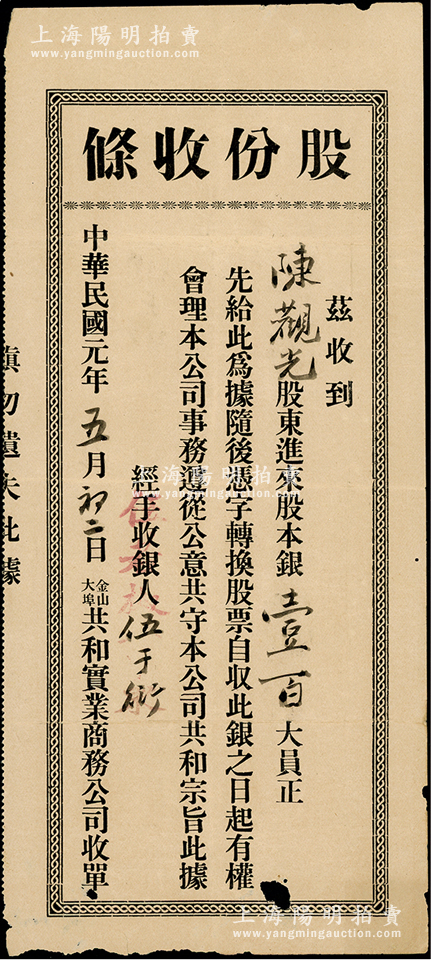 上海陽明拍賣
www.yangmingauction.com
股份收條
茲收到
陳觀光股東進來股本銀壹百大員正
先給此爲據隨後憑字轉換股票自収此銀之日起有權
會理本公司事務遵從公意共守本公司共和宗旨此據
經手收銀人伍于衍
中華民國元年五月初二日金山大埠共和實業商務公司收單
慎勿遺失此據
上海陽明拍賣
www.yangmingauction.com
上海陽明拍賣
www.yangmingauction.com